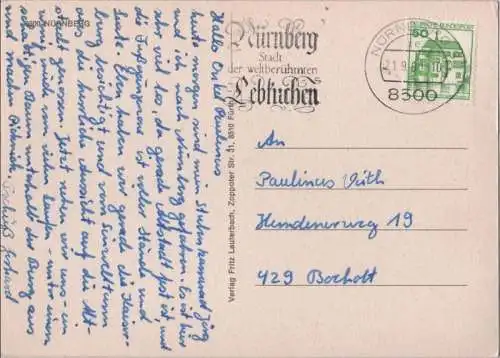 8500 NÜRNBERG
Hallo Onkel Paulinus
heute morgen sind mein Stubenkamerad Jörg
und ich nach Nürnberg gefahren. Es ist hier
aber viel los, da gerade Altstadtfest ist, und
die Fußgängerzone ist voller Stände und
Leute. Eben haben wir gerade die Kaiser-
burg besichtigt und vom Sinwellturm
aus die herrliche Aussicht auf die Alt-
stadt genossen. Jetzt ruhen wir uns - in
vom vielen Laufen - unter einem
schattigen Baum unterhalb der Burg aus
und machen Picknick. Tschüß Gerhard
Verlag Fritz Lauterbach, Zoppoter Str. 31, 8510 Fürth
Nürnberg
Stadt
der weltberühmten
Lebkuchen
NÜRNBERG
21.9.
8500
DEUTSCHE BUNDESPOST
50
An
Paulinus Vith
Hemdenerweg 19
429 Bocholt